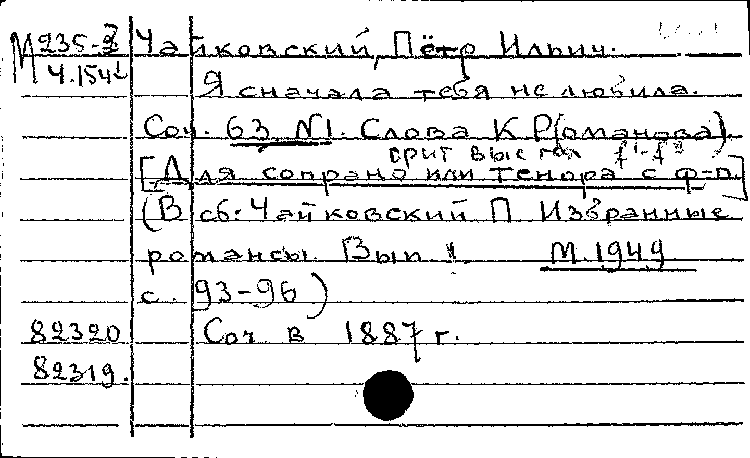 М 235-3 Чайковский, Пётр Ильич.
Ч.154
Я сначала тебя не любила.
Соч. 63 N1. Слова К Р(оманова)
ориг выс гол f¹-f²
[Для сопрано или тенора с ф-п.]
(В сб: Чайковский П Избранные
романсы. Вып 1. М. 1949
с. 93-96)
82320 Соч в 1887 г.
82319.